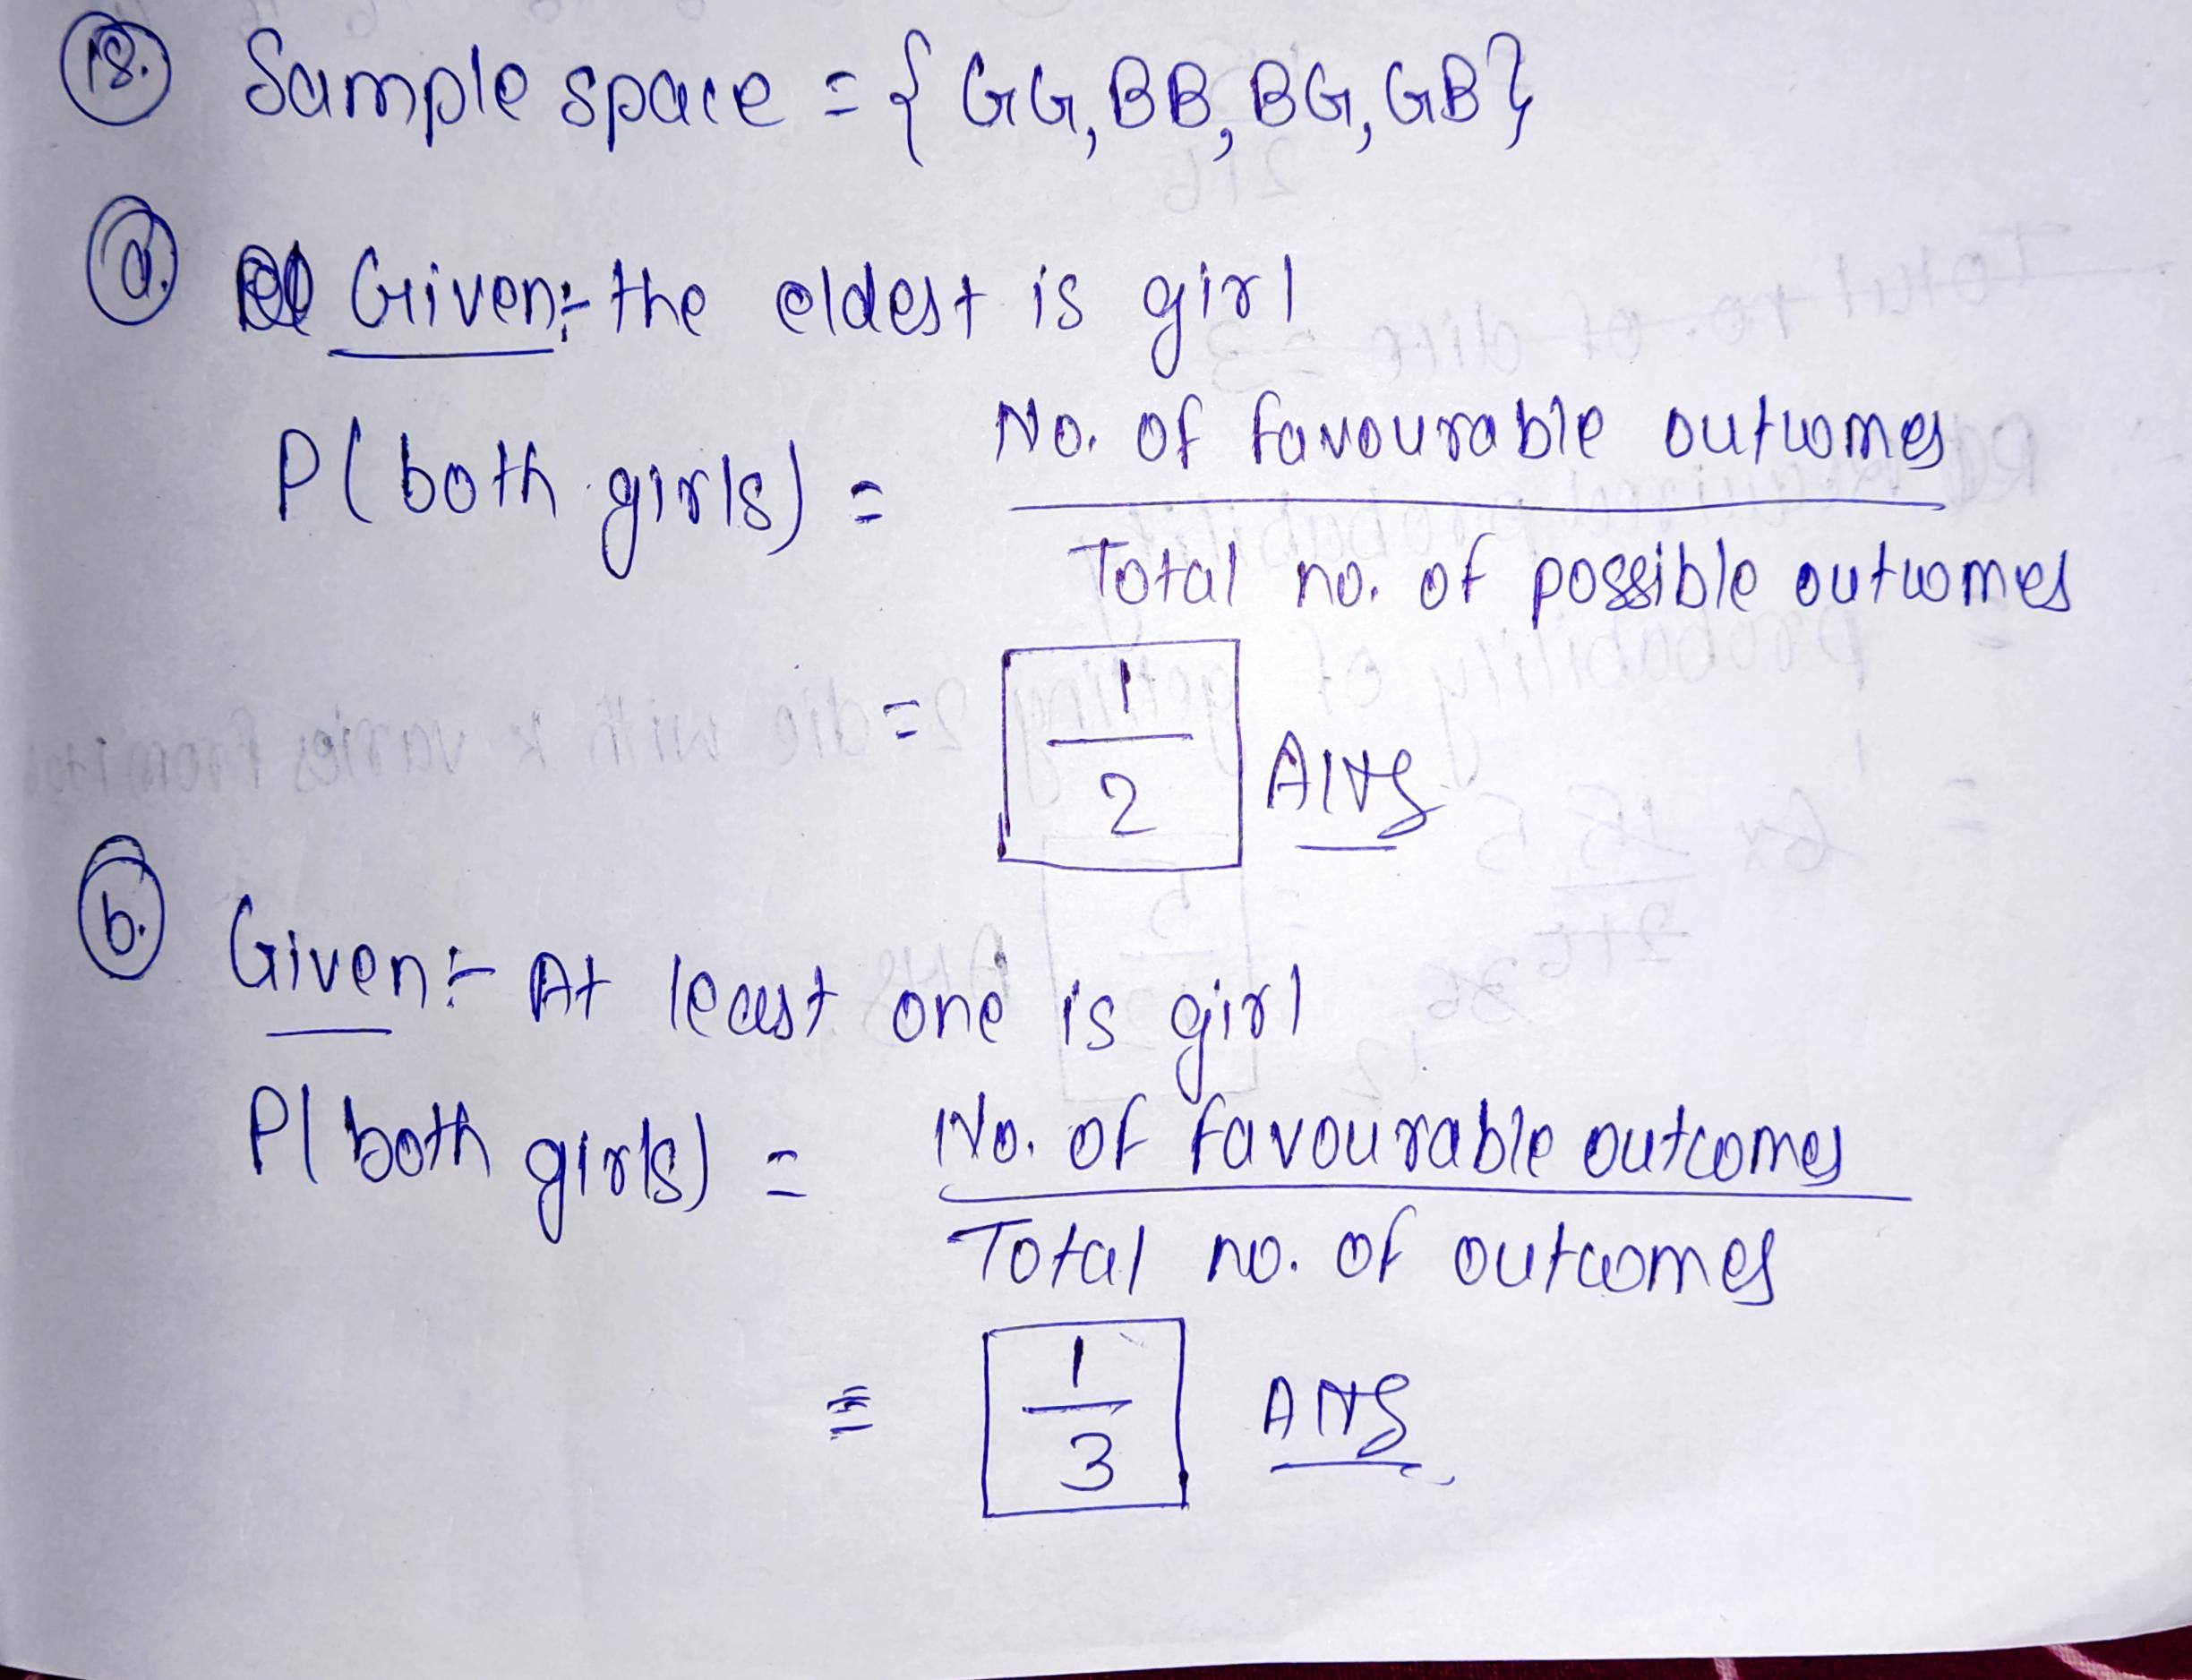 18. Sample space = { GG, BB, BG, GB }
a. Given:- the eldest is girl
P( both girls) = No. of favourable outcomes
Total no. of possible outcomes
= 1
2 ANS
b. Given:- At least one is girl
P( both girls) = No. of favourable outcomes
Total no. of outcomes
= 1
3 ANS